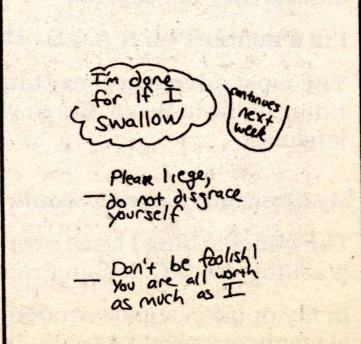 I'm done
for If I
swallow
continues
next
week
Please liege,
— do not disgrace
yourself
Don't be foolish!
— You are all worth
as much as I